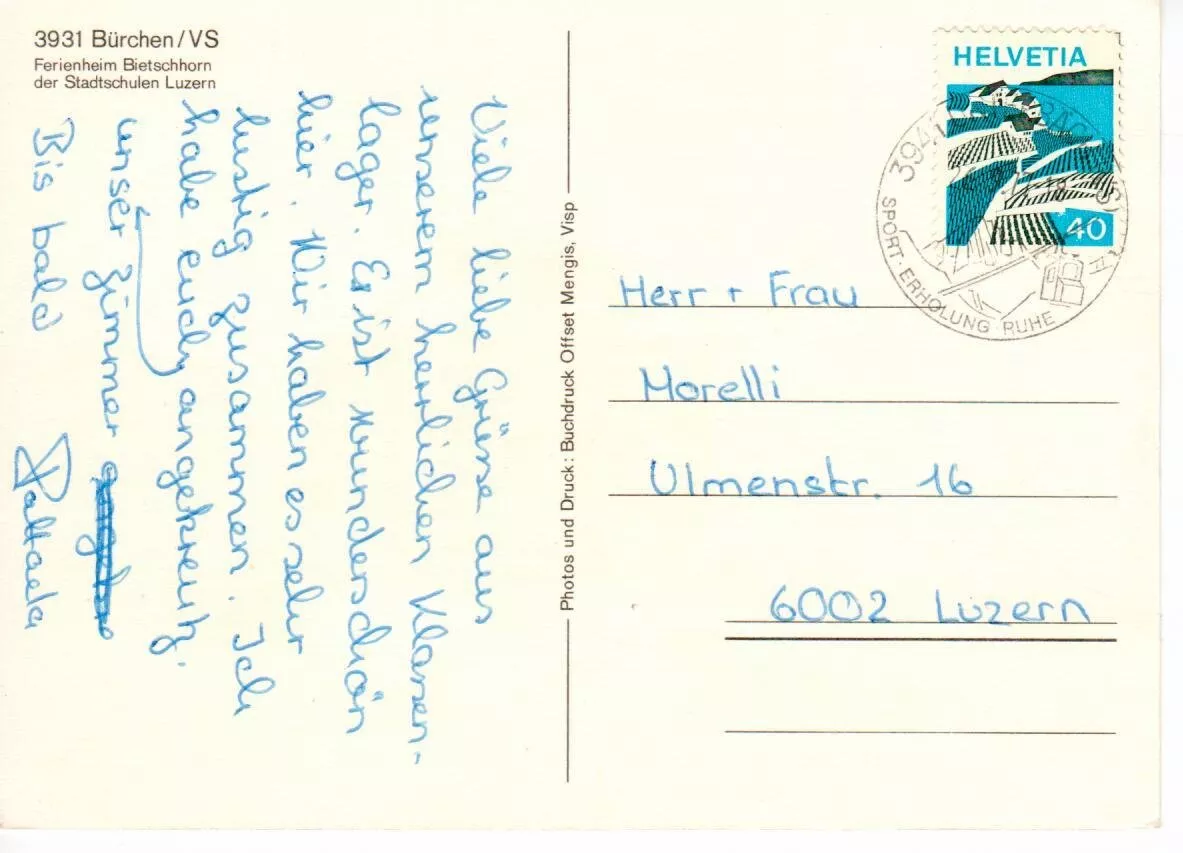 3931 Bürchen/VS
Ferienheim Bietschhorn
der Stadtschulen Luzern
Viele liebe Grüsse aus
unserem herrlichen Klassen-
lager. Es ist wunderschön
hier. Wir haben es sehr
lustig zusammen. Ich
habe euch angekreuzt.
unser Zimmer
Bis bald
Photos und Druck: Buchdruck Offset Mengis, Visp
HELVETIA
40
394
SPORT · ERHOLUNG RUHE
Herr + Frau
Morelli
Ulmenstr. 16
6002 Luzern